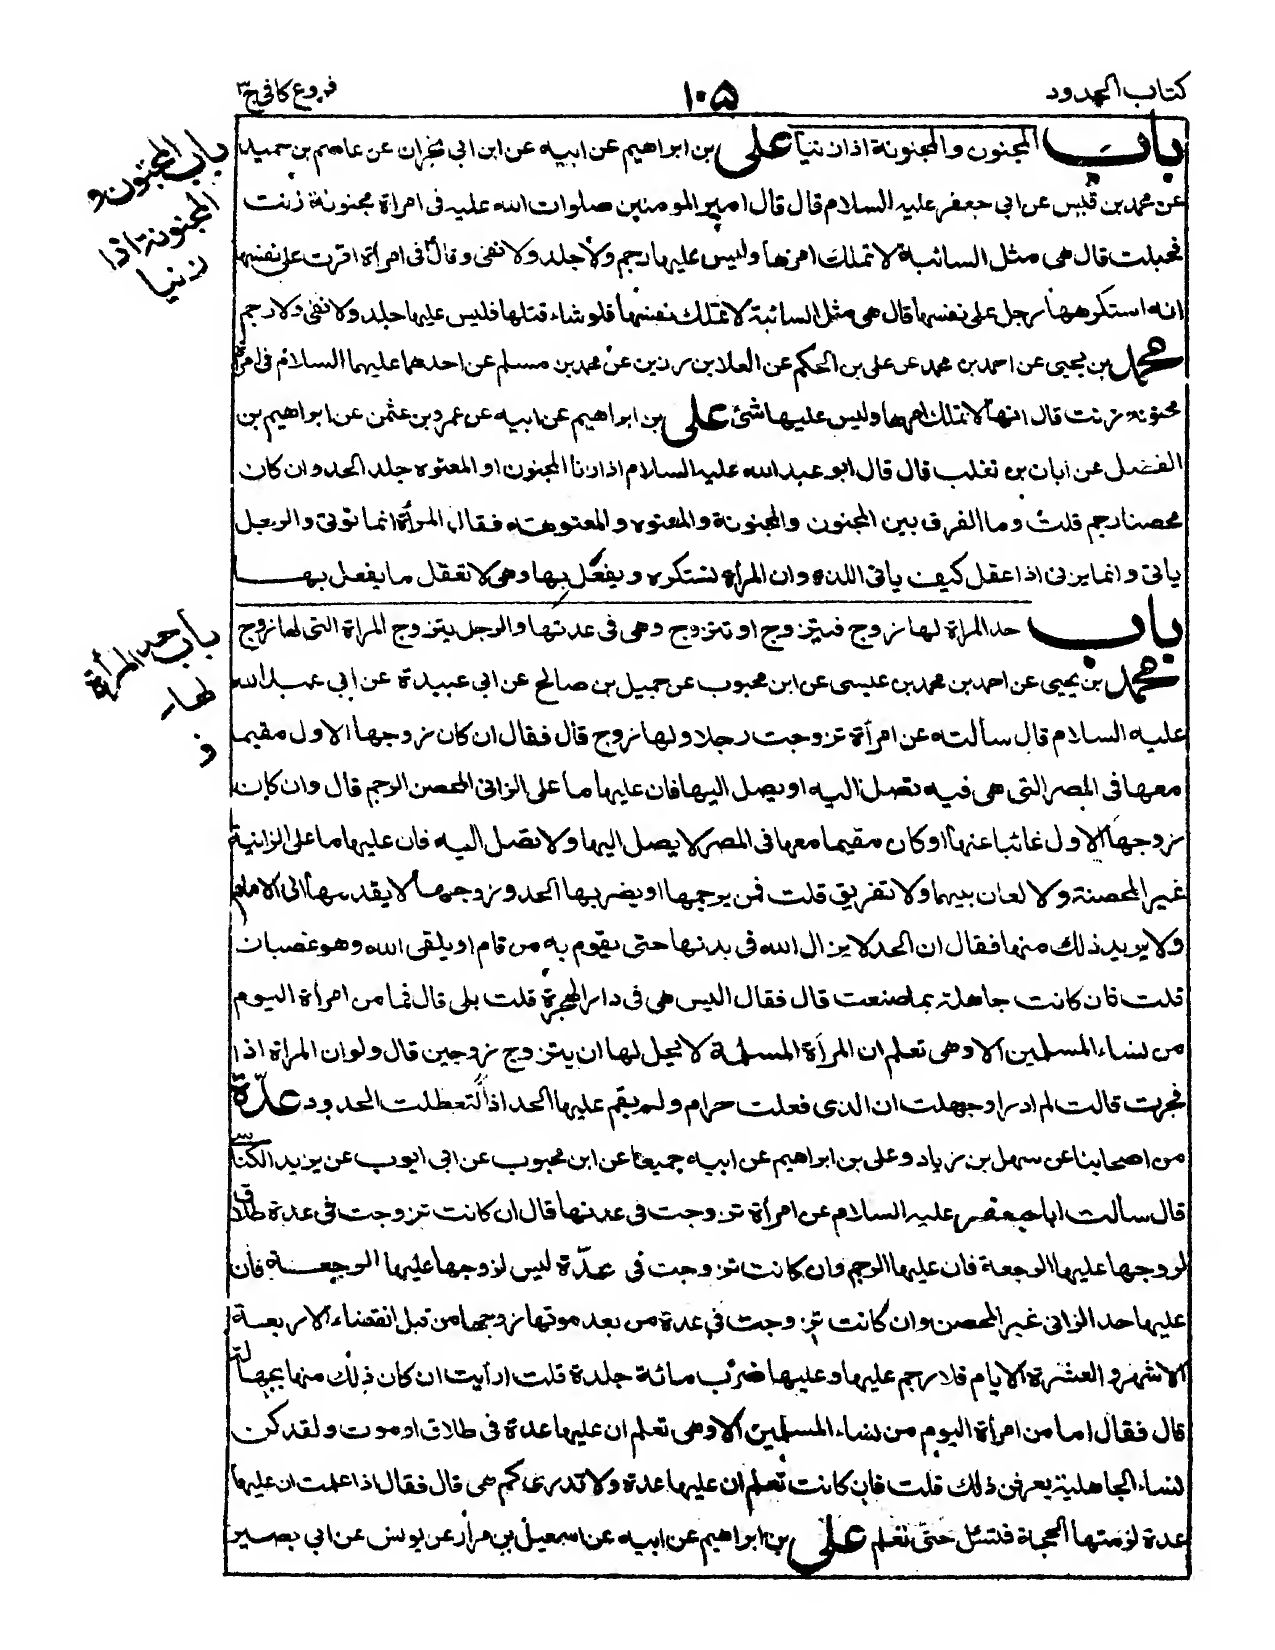 كتاب الحدود
١٠٥
فروع كافى ج٣
باب المجنون و
المجنونة اذا
زنيا
باب المجنون والمجنونة اذا زنيا على بن ابراهيم عن ابيه عن ابن ابى نجران عن عاصم بن حميد
عن محمد بن قيس عن ابى جعفر عليه السلام قال قال امير المومنين صلوات الله عليه فى امراة مجنونة زنت
فحبلت قال هى مثل السائبة لا تملك امرها وليس عليها رجم ولا جلد ولا نفى وقال فى امراة اقرت على نفسها
انه استكرهها رجل على نفسها قال هى مثل السائبة لا تملك نفسها فلو شاء قتلها فليس عليها جلد ولا نفى ولا رجم
محمد بن يحيى عن احمد بن محمد عن على بن الحكم عن العلا بن رزين عن محمد بن مسلم عن احدهما عليهما السلام فى امراة
مجنونة زنت قال انها لا تملك امرها وليس عليها شئ على بن ابراهيم عن ابيه عن عمرو بن عثمن عن ابراهيم بن
الفضل عن ابان بن تغلب قال قال ابو عبد الله عليه السلام اذا زنا المجنون او المعتوه جلد الحد وان كان
محصنا رجم قلت وما الفرق بين المجنون والمجنونة والمعتوه والمعتوهته فقال المرأة انما توتى والرجل
ياتى وانما يزنى اذا عقل كيف ياتى اللذه وان المرأة تستكره ويفعل بها وهى لا تعقل ما يفعل بها
باب حد المرأة
لها
ز
باب حد المراة لها زوج فتزوج او تتزوج وهى فى عدتها والرجل يتزوج المراة التى لها زوج
محمد بن يحيى عن احمد بن محمد بن عيسى عن ابن محبوب عن جميل بن صالح عن ابى عبيدة عن ابى عبد الله
عليه السلام قال سألته عن امرأة تزوجت رجلا ولها زوج قال فقال ان كان زوجها الاول مقيما
معها فى المصر التى هى فيه تصل اليه او يصل اليها فان عليها ما على الزانى المحصن الرجم قال وان كان
زوجها الاول غائبا عنها او كان مقيما معها فى المصر لا يصل اليها ولا تصل اليه فان عليها ما على الزانية
غير المحصنة ولا لعان بينهما ولا تفريق قلت فمن يرجمها او يضربها الحد وزوجها لا يقدمها الى الامام
ولا يريد ذلك منها فقال ان الحد لا يزال الله فى بدنها حتى يقوم به من قام او يلقى الله وهو غضبان
قلت فان كانت جاهلة بما صنعت قال فقال اليس هى فى دار الهجرة قلت بلى قال فما من امرأة اليوم
من نساء المسلمين الا وهى تعلم ان المرأة المسلمة لا يحل لها ان يتزوج زوجين قال ولو ان المراة اذا
فجرت قالت لم ادر او جهلت ان الذى فعلت حرام ولم يقم عليها الحد اذا لتعطلت الحدود عدّة
من اصحابنا عن سهل بن زياد وعلى بن ابراهيم عن ابيه جميعا عن ابن محبوب عن ابى ايوب عن يزيد الكناسى
قال سالت ابا جعفر عليه السلام عن امرأة تزوجت فى عدتها قال ان كانت تزوجت فى عدة طلاق
لزوجها عليها الرجعة فان عليها الرجم وان كانت تزوجت فى عدّة ليس لزوجها عليها الرجعة فان
عليها حد الزانى غير المحصن وان كانت تزوجت فى عدة من بعد موتها زوجها من قبل انقضاء الاربعة
الاشهر و العشرة الايام فلا رجم عليها وعليها ضرب مائة جلدة قلت ارأيت ان كان ذلك منها بجهالة
قال فقال اما من امرأة اليوم من نساء المسلمين الا وهى تعلم ان عليها عدة فى طلاق او موت ولقد كن
نساء الجاهلية يعرفن ذلك قلت فان كانت تعلم ان عليها عدة ولا تدرى كم هى قال فقال اذا علمت ان عليها
عدة لزمتها الحجة فتسئل حتى تعلم على بن ابراهيم عن ابيه عن اسمعيل بن مرار عن يونس عن ابى بصير